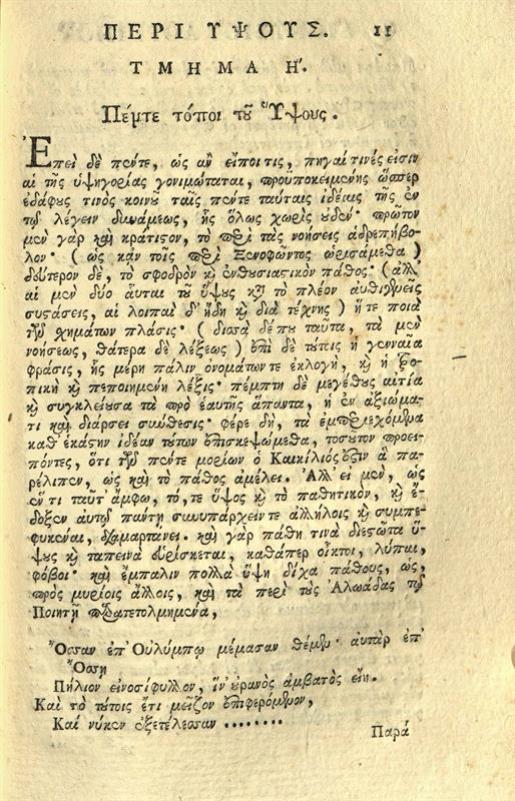 ΠΕΡΙ ΥΨΟΥΣ. 11
ΤΜΗΜΑ Η'.
Πέντε τόποι τοῦ Ὕψους.
Ἐπεὶ δὲ πέντε, ὡς ἂν εἴποι τις, πηγαί τινές εἰσιν
αἱ τῆς ὑψηγορίας γονιμώταται, προϋποκειμένης ὥσπερ
ἐδάφους τινὸς κοινοῦ ταῖς πέντε ταύταις ἰδέαις τῆς ἐν
τῷ λέγειν δυνάμεως, ἧς ὅλως χωρὶς οὐδέν· πρῶτον
μὲν γὰρ καὶ κράτιστον, τὸ περὶ τὰς νοήσεις ἁδρεπήβο-
λον· (ὡς κἂν τοῖς περὶ Ξενοφῶντος ὡρισάμεθα)
δεύτερον δὲ, τὸ σφοδρὸν καὶ ἐνθουσιαστικὸν πάθος· (ἀλλ'
αἱ μὲν δύο αὗται τοῦ ὕψους κατὰ τὸ πλέον αὐθιγενεῖς
συστάσεις, αἱ λοιπαὶ δ' ἤδη καὶ διὰ τέχνης) ἥτε ποιὰ
τῶν χημάτων πλάσις· (δισσὰ δέ που ταῦτα, τὰ μὲν
νοήσεως, θάτερα δὲ λέξεως) ἐπὶ δὲ τούτοις ἡ γενναία
φράσις, ἧς μέρη πάλιν ὀνομάτων τε ἐκλογὴ, καὶ ἡ τρο-
πικὴ καὶ πεποιημένη λέξις· πέμπτη δὲ μεγέθους αἰτία
καὶ συγκλείουσα τὰ πρὸ ἑαυτῆς ἅπαντα, ἡ ἐν ἀξιώμα-
τι καὶ διάρσει σύνθεσις· φέρε δὴ, τὰ ἐμπεριεχόμενα
καθ' ἑκάστην ἰδέαν τούτων ἐπισκεψώμεθα, τοσοῦτον προει-
πόντες, ὅτι τῶν πέντε μορίων ὁ Καικίλιος ἔστιν ἃ πα-
ρέλιπεν, ὡς καὶ τὸ πάθος ἀμέλει. Ἀλλ' εἰ μὲν, ὡς
ἕν τι ταῦτ' ἄμφω, τό, τε ὕψος καὶ τὸ παθητικὸν, καὶ ἔ-
δοξεν αὐτῷ πάντη συνυπάρχειν τε ἀλλήλοις καὶ συμπε-
φυκέναι, διαμαρτάνει. καὶ γὰρ πάθη τινὰ διεστῶτα ὕ-
ψους καὶ ταπεινὰ εὑρίσκεται, καθάπερ οἶκτοι, λύπαι,
φόβοι· καὶ ἔμπαλιν πολλὰ ὕψη δίχα πάθους, ὡς,
πρὸς μυρίοις ἄλλοις, καὶ τὰ περὶ τοὺς Ἀλωάδας τῷ
Ποιητῇ παρατετολμημένα,
Ὄσσαν ἐπ' Οὐλύμπῳ μέμασαν θέμεν· αὐτὰρ ἐπ'
Ὄσσῃ
Πήλιον εἰνοσίφυλλον, ἵν' οὐρανὸς ἀμβατὸς εἴη.
Καὶ τὸ τούτοις ἔτι μεῖζον ἐπιφερόμενον,
Καί νύκεν ἐξετέλεσσαν ........
Παρά